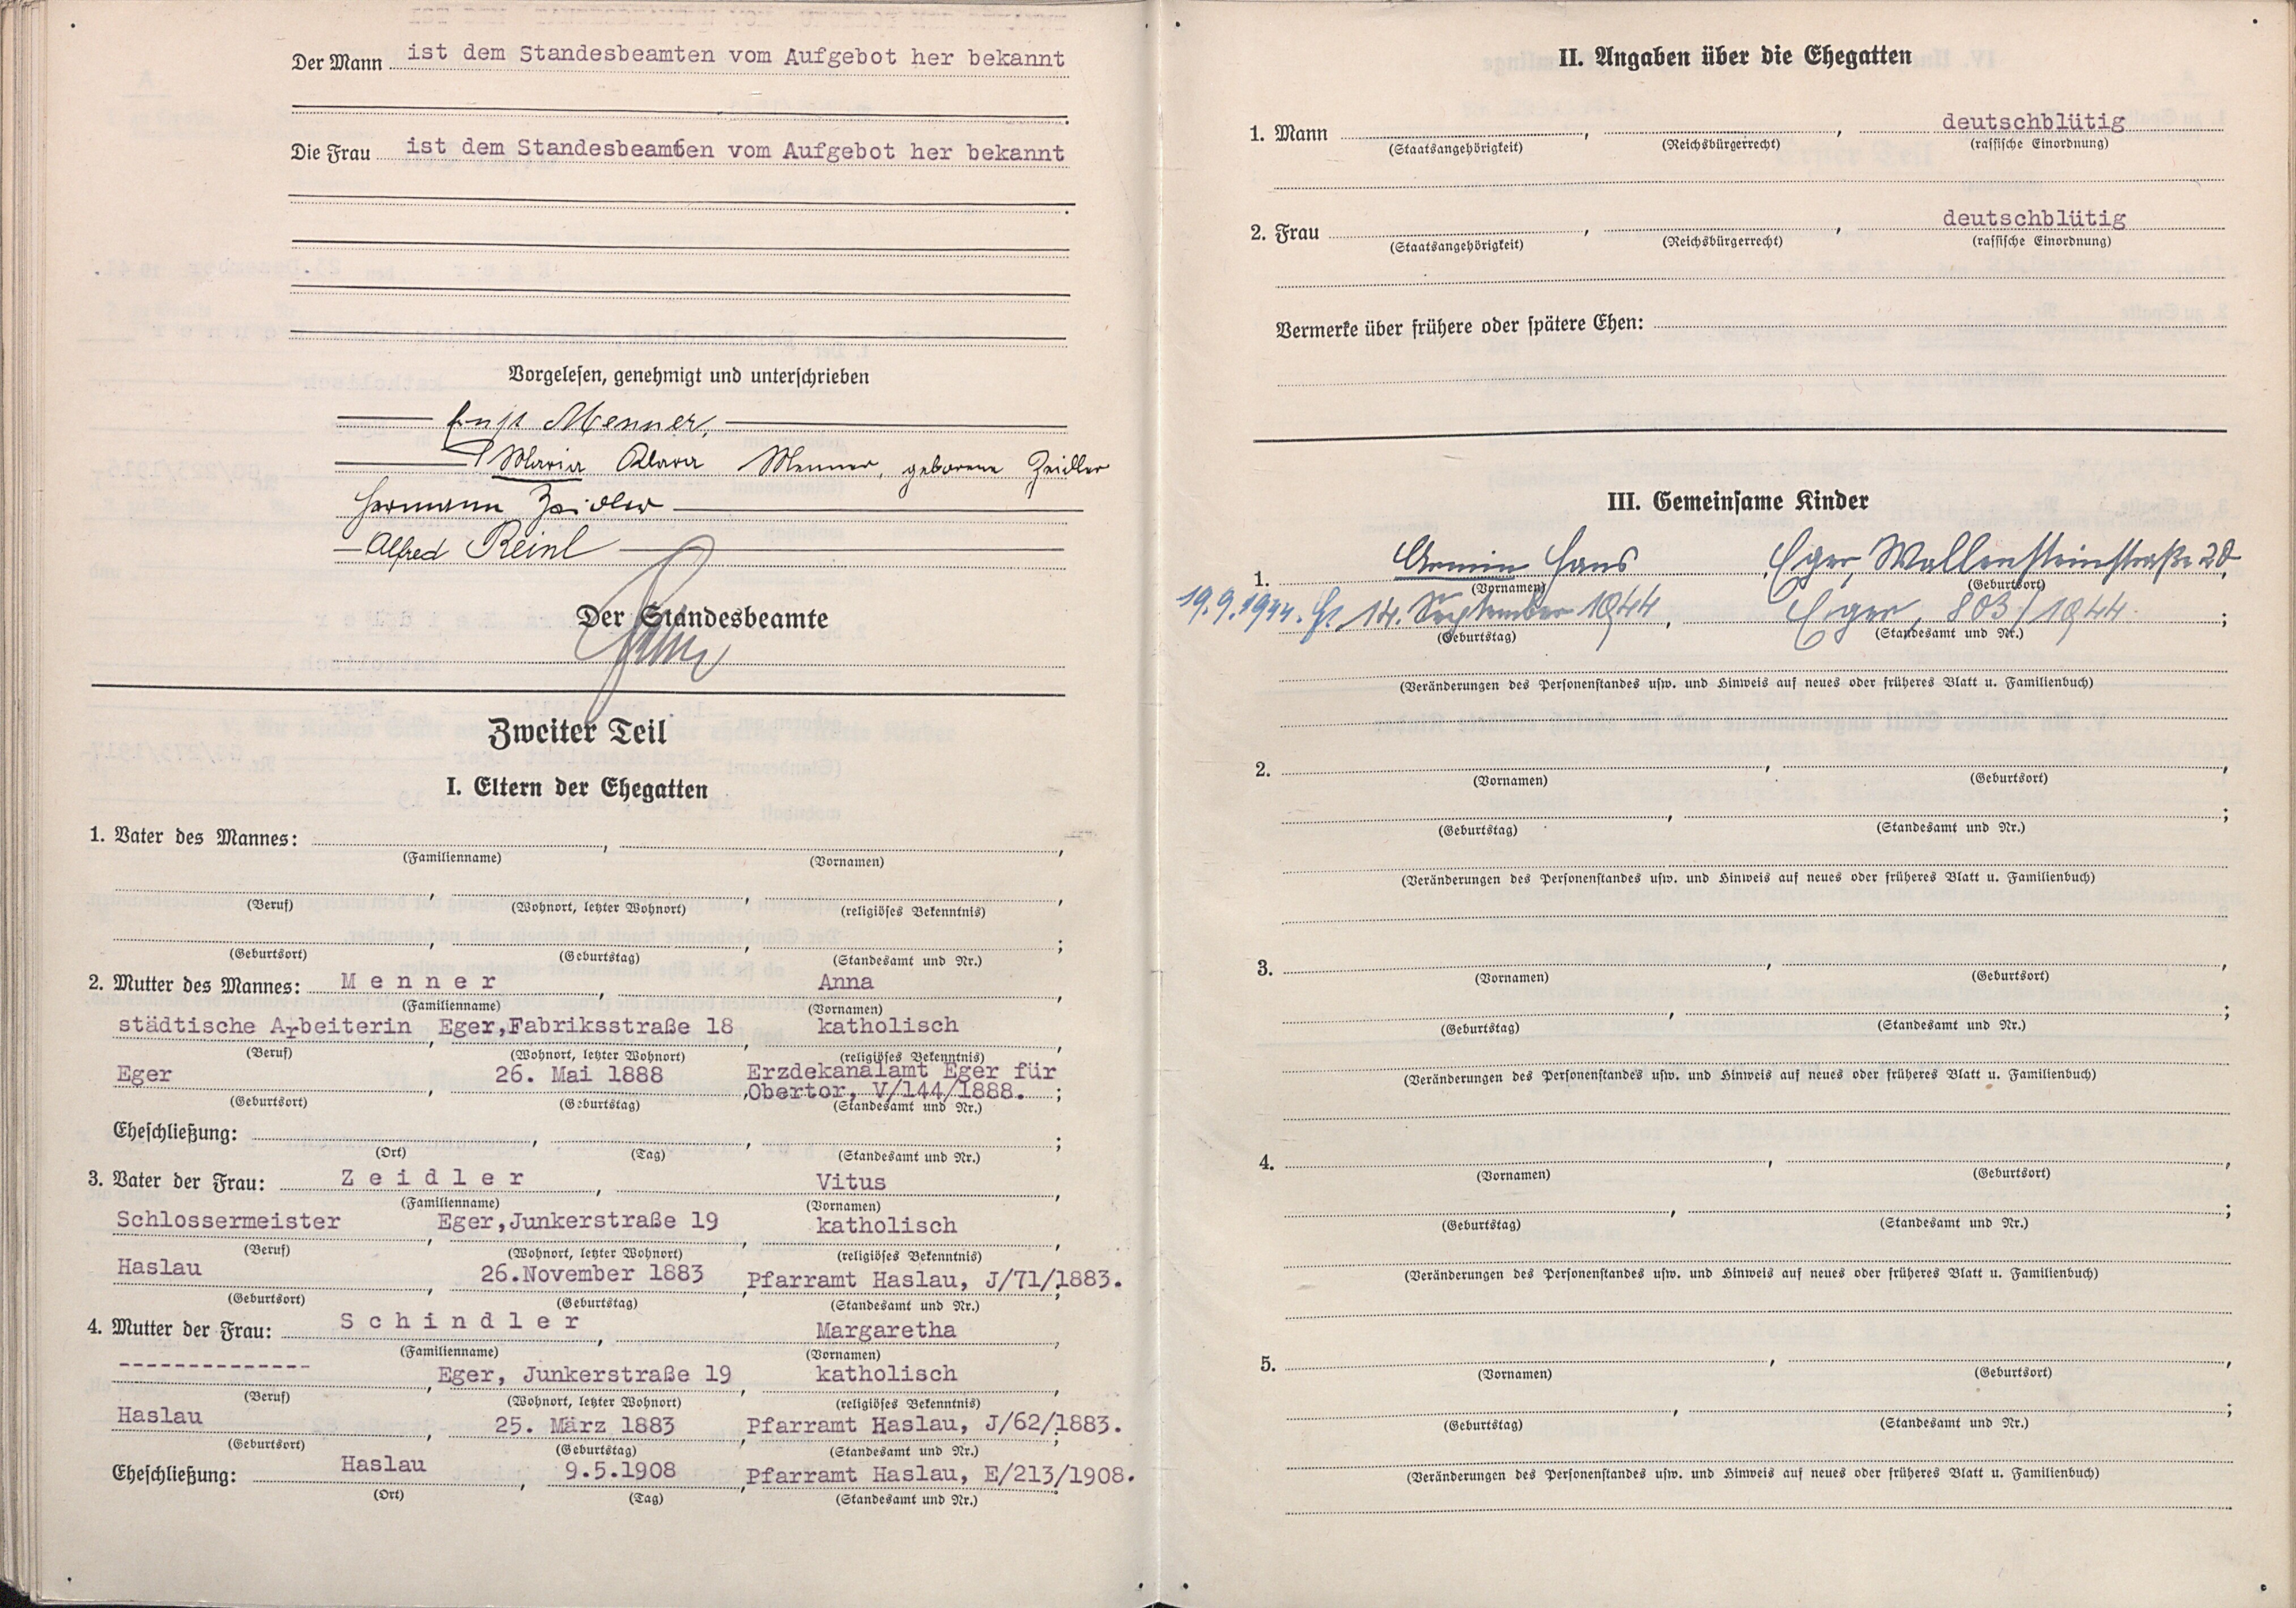 Der Mann ist dem Standesbeamten vom Aufgebot her bekannt
Die Frau ist dem Standesbeamten vom Aufgebot her bekannt
Vorgelesen, genehmigt und unterschrieben
Ernst Menner,
Maria Klara Menner, geborene Zeidler
Hermann Zeidler
Alfred Reinl
Der Standesbeamte
Zweiter Teil
I. Eltern der Ehegatten
1. Vater des Mannes: , ,
(Familienname) (Vornamen)
(Beruf) (Wohnort, letzter Wohnort) (religiöses Bekenntnis)
(Geburtsort) (Geburtstag) (Standesamt und Nr.)
2. Mutter des Mannes: Menner, Anna,
(Familienname) (Vornamen)
städtische Arbeiterin, Eger,Fabriksstraße 18, katholisch,
(Beruf) (Wohnort, letzter Wohnort) (religiöses Bekenntnis)
Eger, 26. Mai 1888, Erzdekanalamt Eger für
Obertor, V/144/1888. ;
(Geburtsort) (Geburtstag) (Standesamt und Nr.)
Eheschließung: , , ;
(Ort) (Tag) (Standesamt und Nr.)
3. Vater der Frau: Zeidler, Vitus,
(Familienname) (Vornamen)
Schlossermeister, Eger,Junkerstraße 19, katholisch,
(Beruf) (Wohnort, letzter Wohnort) (religiöses Bekenntnis)
Haslau, 26.November 1883, Pfarramt Haslau, J/71/1883. ;
(Geburtsort) (Geburtstag) (Standesamt und Nr.)
4. Mutter der Frau: Schindler, Margaretha,
(Familienname) (Vornamen)
--------------, Eger, Junkerstraße 19, katholisch,
(Beruf) (Wohnort, letzter Wohnort) (religiöses Bekenntnis)
Haslau, 25. März 1883, Pfarramt Haslau, J/62/1883. ;
(Geburtsort) (Geburtstag) (Standesamt und Nr.)
Eheschließung: Haslau, 9.5.1908, Pfarramt Haslau, E/213/1908.
(Ort) (Tag) (Standesamt und Nr.)
II. Angaben über die Ehegatten
1. Mann , , deutschblütig
(Staatsangehörigkeit) (Reichsbürgerrecht) (rassische Einordnung)
2. Frau , , deutschblütig
(Staatsangehörigkeit) (Reichsbürgerrecht) (rassische Einordnung)
Vermerke über frühere oder spätere Ehen:
III. Gemeinsame Kinder
1. Armin Hans, Eger, Wallensteinstraße 20,
(Vornamen) (Geburtsort)
19.9.1944. 14. September 1944, Eger, 803/1944. ;
(Geburtstag) (Standesamt und Nr.)
(Veränderungen des Personenstandes usw. und Hinweis auf neues oder früheres Blatt u. Familienbuch)
2. , ,
(Vornamen) (Geburtsort)
(Geburtstag) (Standesamt und Nr.)
(Veränderungen des Personenstandes usw. und Hinweis auf neues oder früheres Blatt u. Familienbuch)
3. , ,
(Vornamen) (Geburtsort)
(Geburtstag) (Standesamt und Nr.)
(Veränderungen des Personenstandes usw. und Hinweis auf neues oder früheres Blatt u. Familienbuch)
4. , ,
(Vornamen) (Geburtsort)
(Geburtstag) (Standesamt und Nr.)
(Veränderungen des Personenstandes usw. und Hinweis auf neues oder früheres Blatt u. Familienbuch)
5. , ,
(Vornamen) (Geburtsort)
(Geburtstag) (Standesamt und Nr.)
(Veränderungen des Personenstandes usw. und Hinweis auf neues oder früheres Blatt u. Familienbuch)